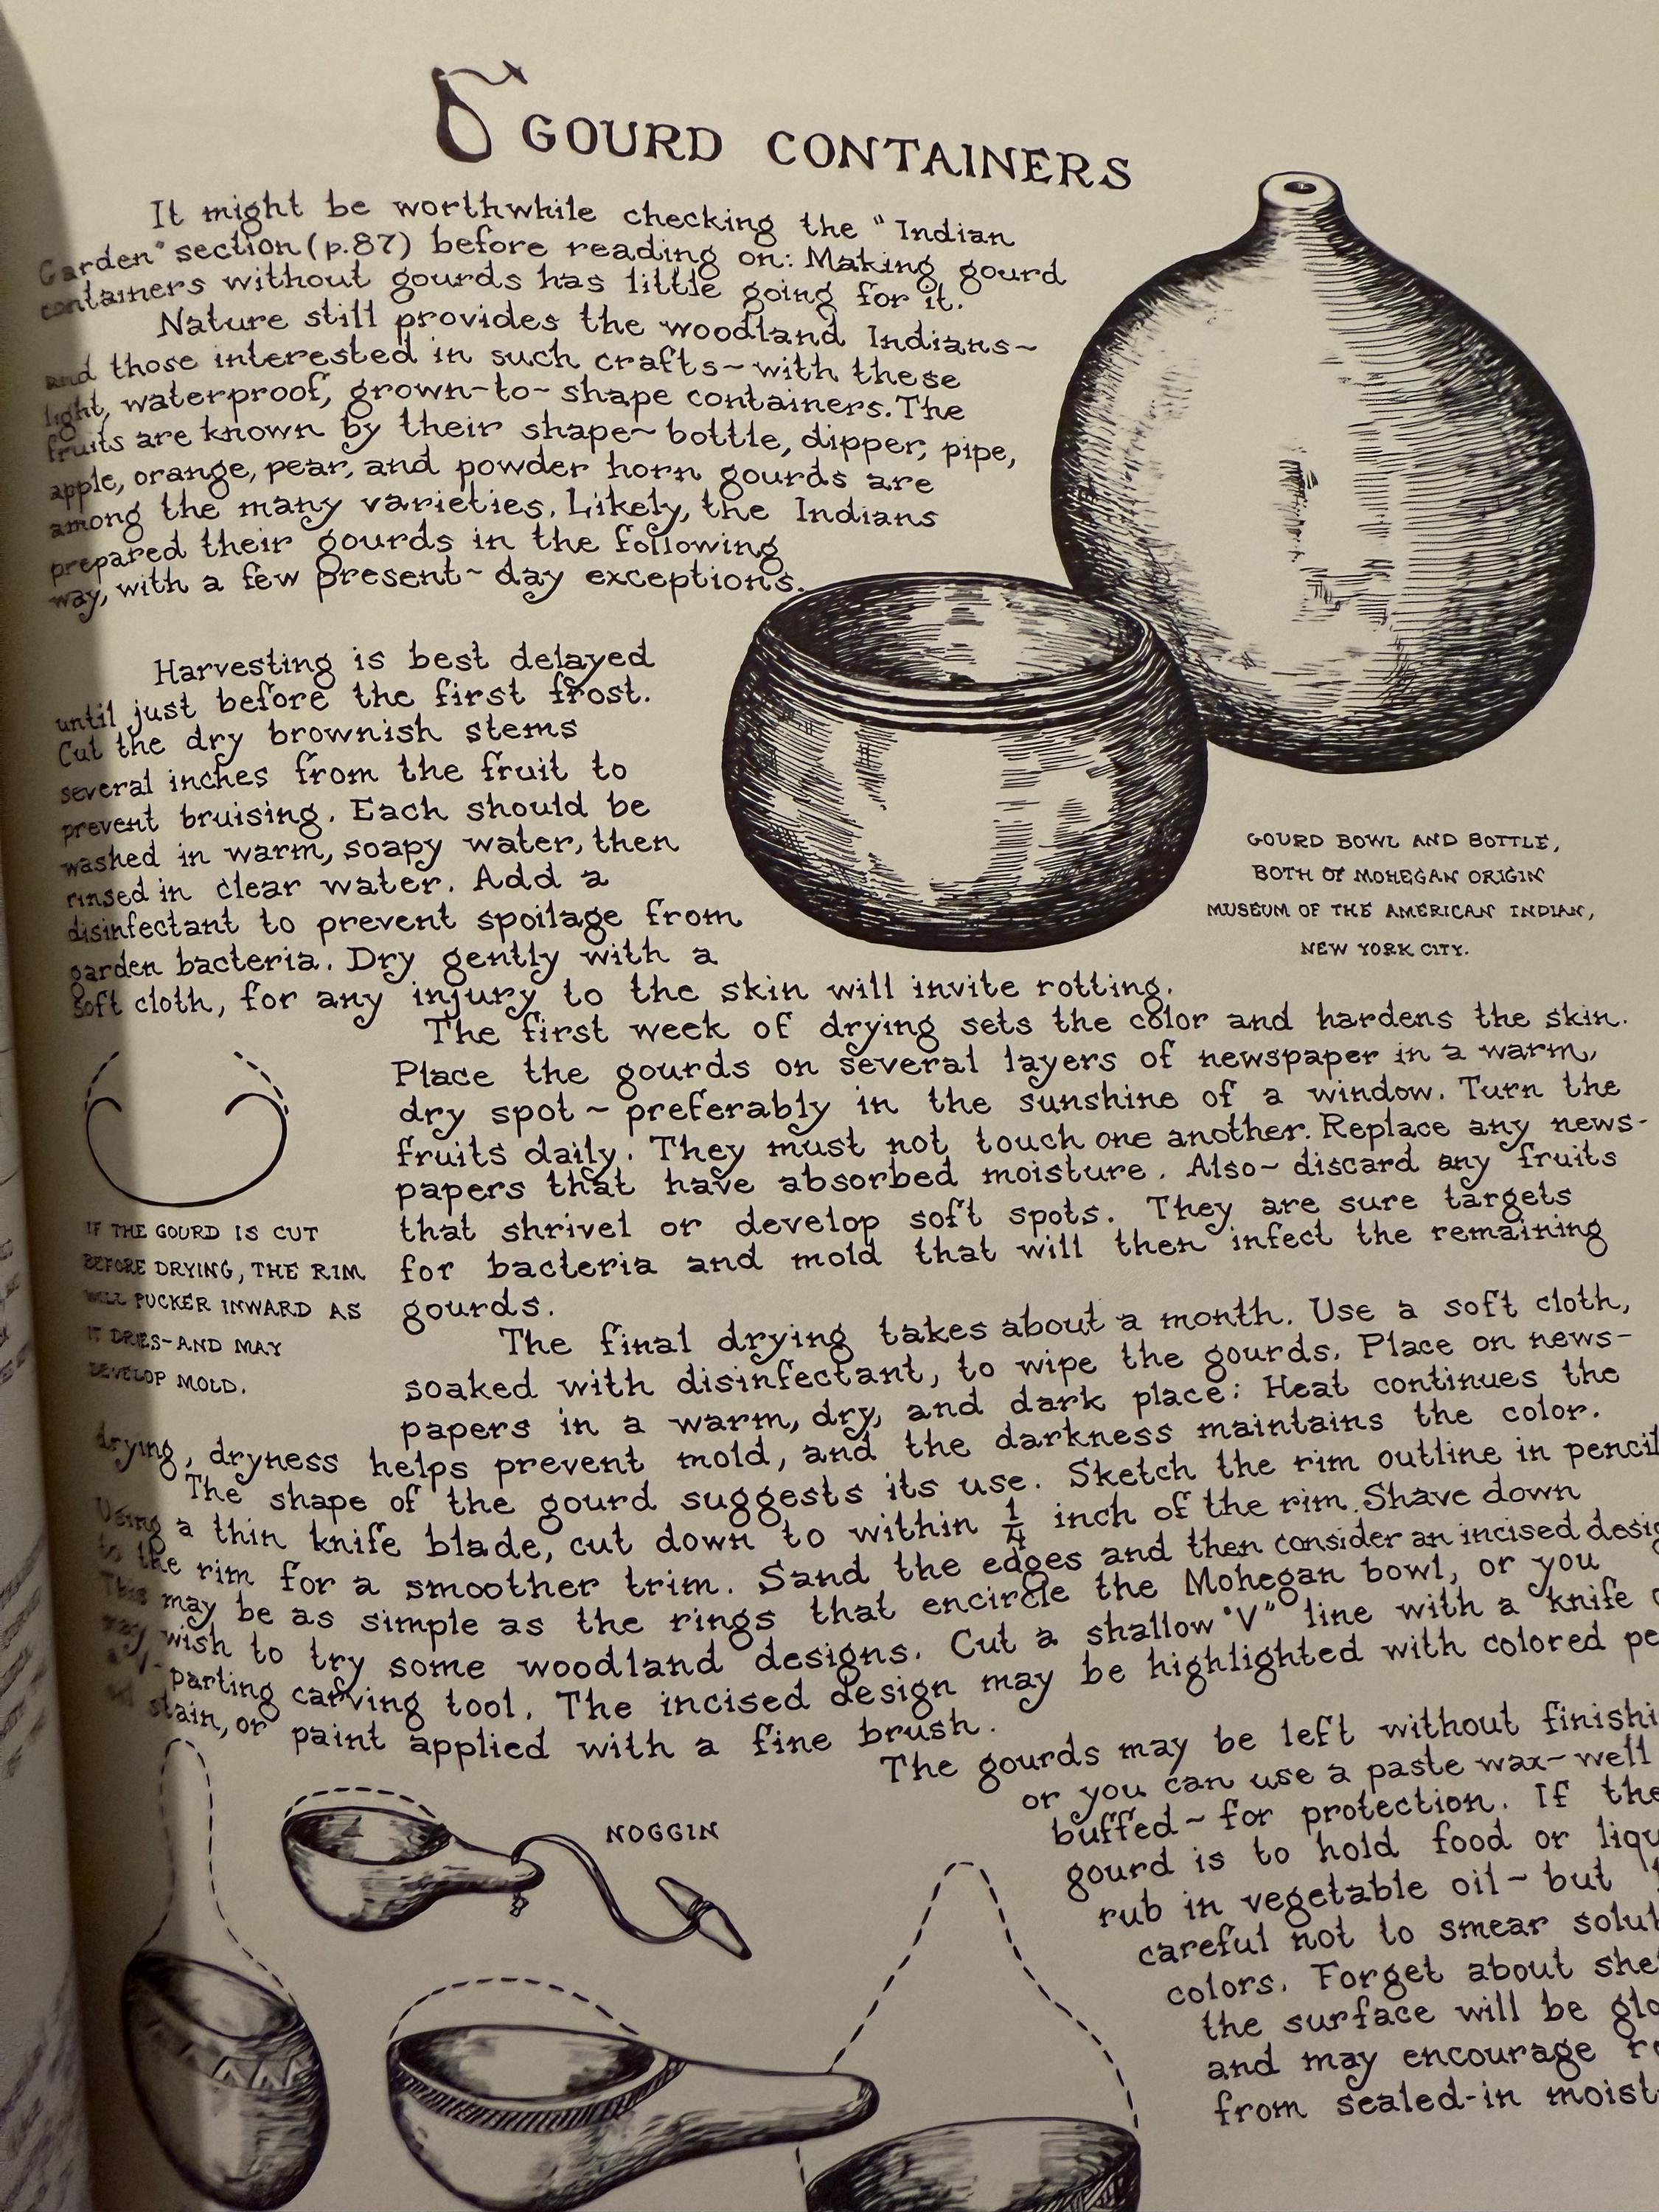 GOURD CONTAINERS
It might be worthwhile checking the "Indian
Garden" section (p.87) before reading on: Making gourd
containers without gourds has little going for it.
Nature still provides the woodland Indians~
and those interested in such crafts~with these
light, waterproof, grown~to~shape containers. The
fruits are known by their shape~bottle, dipper, pipe,
apple, orange, pear, and powder horn gourds are
among the many varieties. Likely, the Indians
prepared their gourds in the following
way, with a few present~day exceptions.
Harvesting is best delayed
until just before the first frost.
Cut the dry brownish stems
several inches from the fruit to
prevent bruising. Each should be
washed in warm, soapy water, then
rinsed in clear water. Add a
disinfectant to prevent spoilage from
garden bacteria. Dry gently with a
soft cloth, for any injury to the skin will invite rotting.
GOURD BOWL AND BOTTLE,
BOTH OF MOHEGAN ORIGIN
MUSEUM OF THE AMERICAN INDIAN,
NEW YORK CITY.
The first week of drying sets the color and hardens the skin.
Place the gourds on several layers of newspaper in a warm,
dry spot ~ preferably in the sunshine of a window. Turn the
fruits daily. They must not touch one another. Replace any news-
papers that have absorbed moisture. Also~ discard any fruits
that shrivel or develop soft spots. They are sure targets
for bacteria and mold that will then infect the remaining
gourds.
IF THE GOURD IS CUT
BEFORE DRYING, THE RIM
WILL PUCKER INWARD AS
IT DRIES-AND MAY
DEVELOP MOLD.
The final drying takes about a month. Use a soft cloth,
soaked with disinfectant, to wipe the gourds. Place on news-
papers in a warm, dry, and dark place: Heat continues the
drying, dryness helps prevent mold, and the darkness maintains the color.
The shape of the gourd suggests its use. Sketch the rim outline in pencil
Using a thin knife blade, cut down to within 1/4 inch of the rim. Shave down
to the rim for a smoother trim. Sand the edges and then consider an incised desig
This may be as simple as the rings that encircle the Mohegan bowl, or you
may wish to try some woodland designs. Cut a shallow "V" line with a knife
a V-parting carving tool. The incised design may be highlighted with colored pe
stain, or paint applied with a fine brush.
The gourds may be left without finishi
or you can use a paste wax~well
buffed~ for protection. If the
gourd is to hold food or liqu
rub in vegetable oil~ but
careful not to smear solub
colors. Forget about she
the surface will be glo
and may encourage
from sealed-in moist
NOGGIN